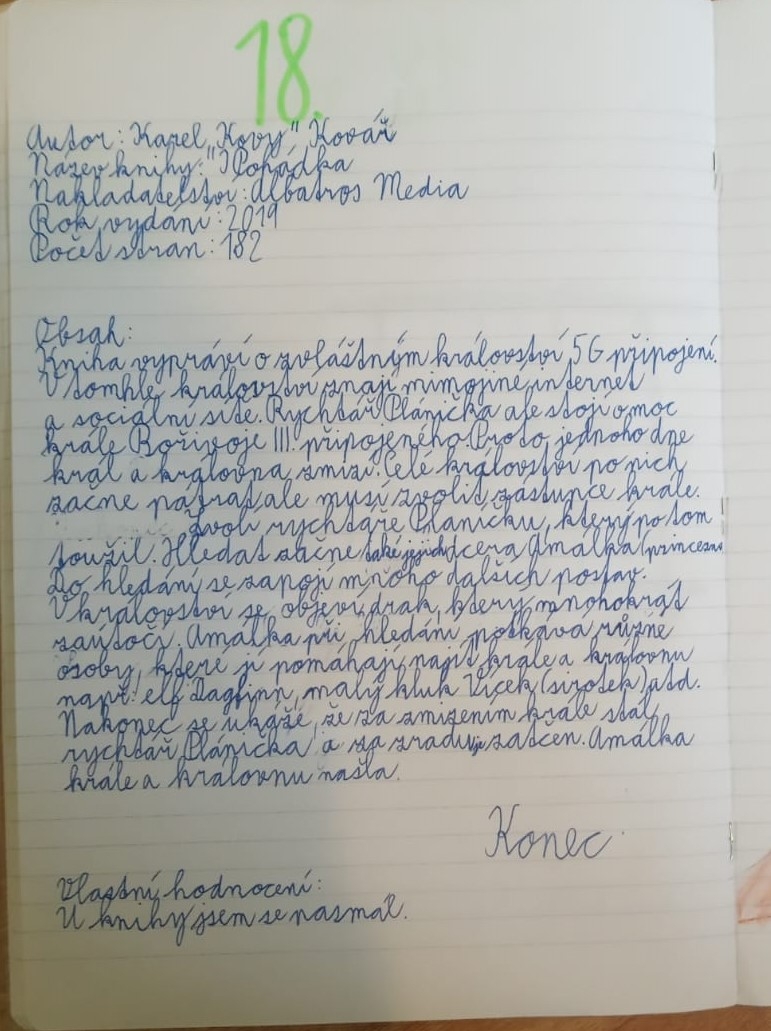 18.
Autor: Karel "Kovy" Kovář
Název knihy: "iPohádka
Nakladatelství: Albatros Media
Rok vydání: 2019
Počet stran: 182
Obsah:
Kniha vypráví o zvláštným království 5G připojení.
V tomhle království znají mimojiné internet
a sociální sítě. Rychtář Plánička ale stojí o moc
krále Bořivoje III. připojeného. Proto jednoho dne
král a královna zmizí. Celé království po nich
začne pátrat ale musí zvolit zástupce krále.
Zvolí rychtáře Pláničku, který po tom
toužil. Hledat začne také jejich dcera Amálka (princezna
Do hledání se zapojí mnoho dalších postav.
V království se objeví drak, který mnohokrát
zaútočí. Amálka při hledání potkává různé
osoby, které jí pomáhají najít krále a královnu
např: elf Dagfinn, malý kluk Vícek (sirotek) atd.
Nakonec se ukáže, že za zmizením krále stál
rychtář Plánička, a za zradu je zatčen. Amálka
krále a královnu našla.
Konec
Vlastní hodnocení:
U knihy jsem se nasmál.